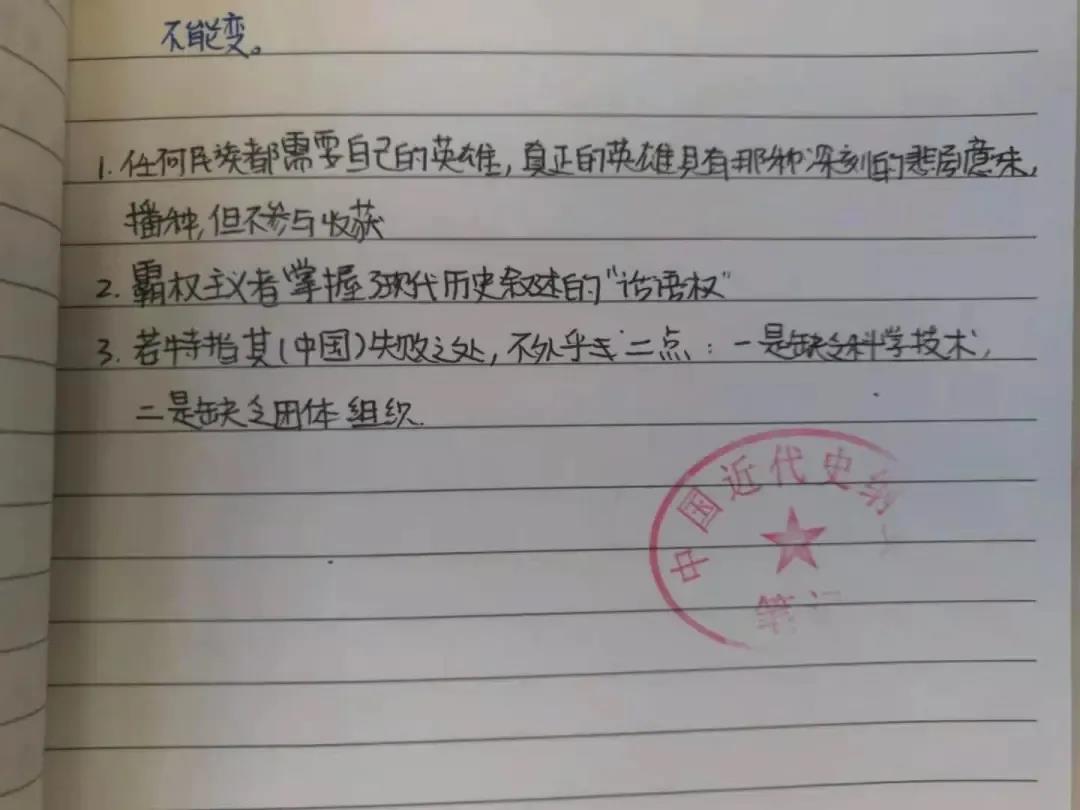 不能变。
1. 任何民族都需要自己的英雄，真正的英雄具有那种深刻的悲剧意味，
播种，但不参与收获
2. 霸权主义者掌握了现代历史叙述的“话语权”
3. 若特指其（中国）失败之处，不外乎 二点：一是缺乏科学技术，
二是缺乏团体组织.
中国近代史纲
笔记